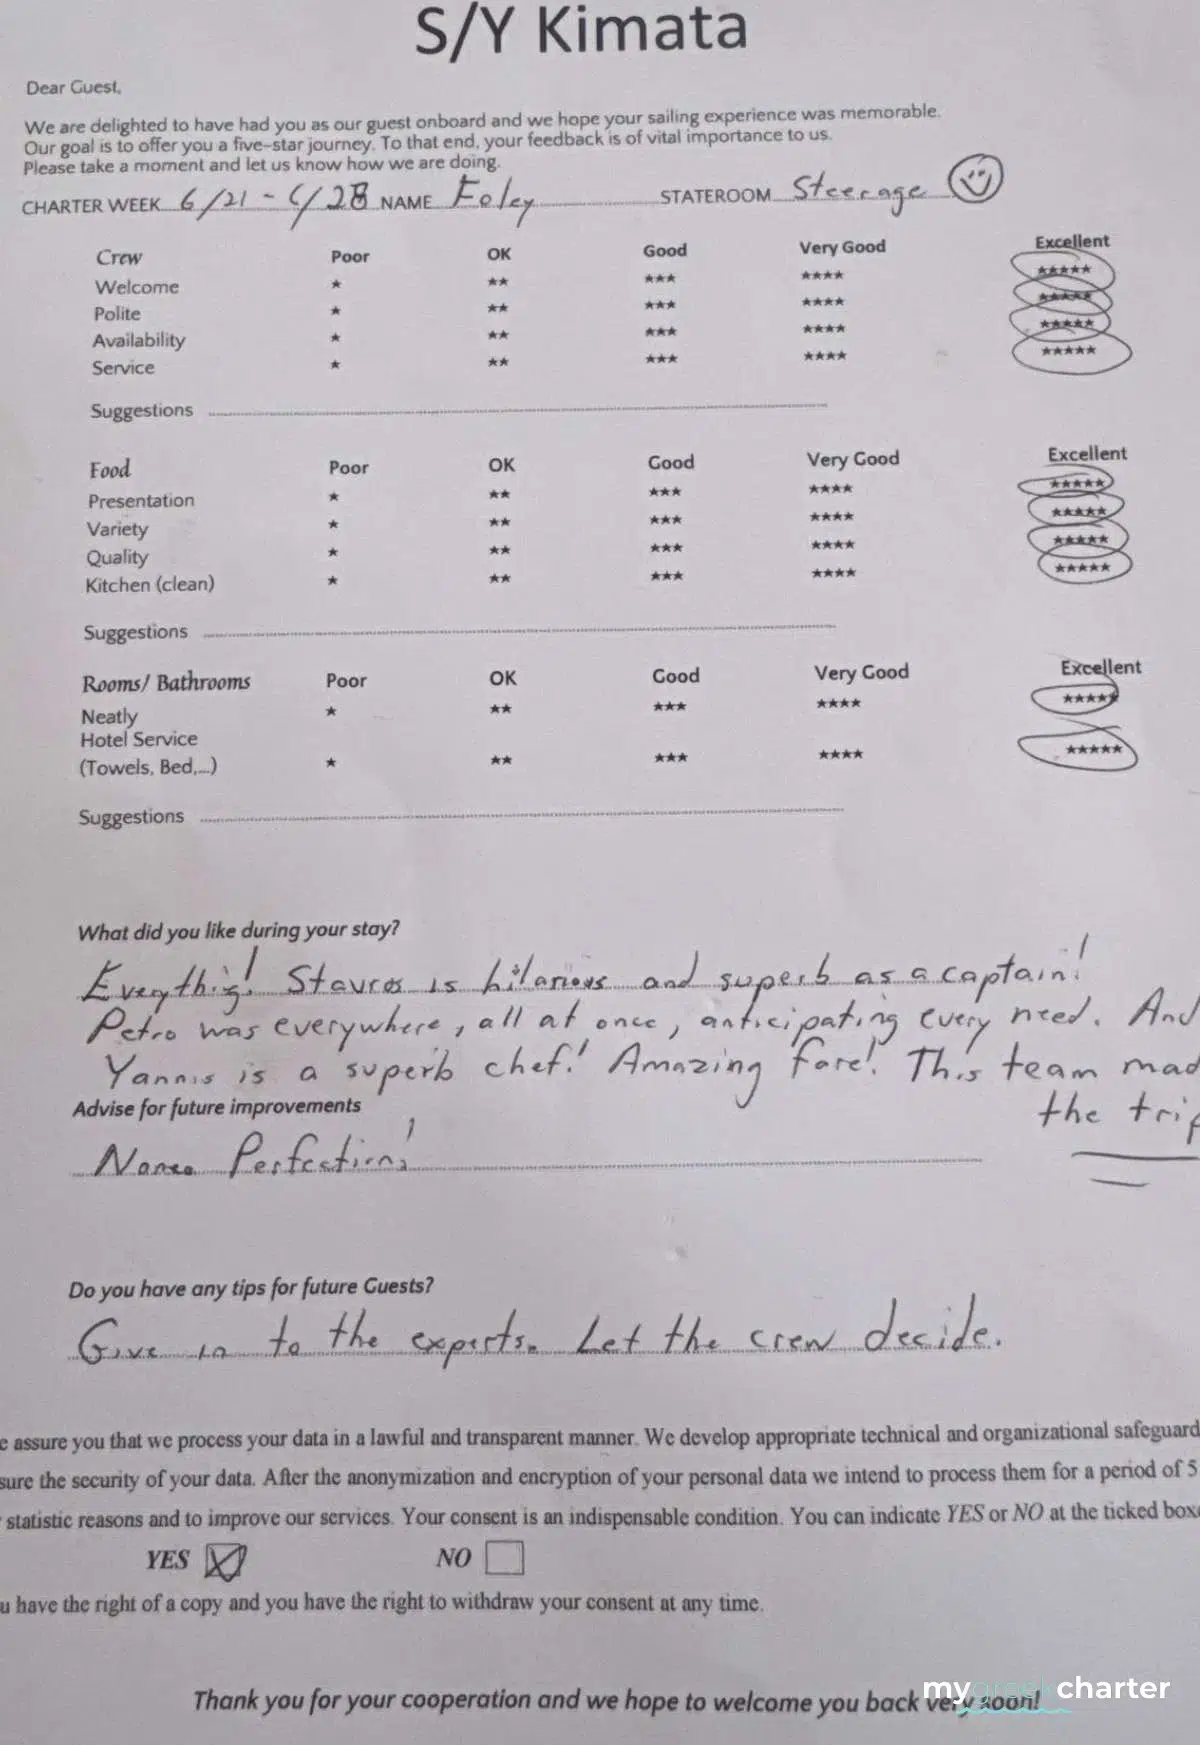 S/Y Kimata
Dear Guest,
We are delighted to have had you as our guest onboard and we hope your sailing experience was memorable.
Our goal is to offer you a five-star journey. To that end, your feedback is of vital importance to us.
Please take a moment and let us know how we are doing.
CHARTER WEEK 6/21 - 6/28 NAME Foley STATEROOM Steerage
Crew Poor OK Good Very Good Excellent
Welcome ★ ★★ ★★★ ★★★★ ★★★★★
Polite ★ ★★ ★★★ ★★★★ ★★★★★
Availability ★ ★★ ★★★ ★★★★ ★★★★★
Service ★ ★★ ★★★ ★★★★ ★★★★★
Suggestions
Food Poor OK Good Very Good Excellent
Presentation ★ ★★ ★★★ ★★★★ ★★★★★
Variety ★ ★★ ★★★ ★★★★ ★★★★★
Quality ★ ★★ ★★★ ★★★★ ★★★★★
Kitchen (clean) ★ ★★ ★★★ ★★★★ ★★★★★
Suggestions
Rooms/ Bathrooms Poor OK Good Very Good Excellent
Neatly ★ ★★ ★★★ ★★★★ ★★★★★
Hotel Service
(Towels, Bed,...) ★ ★★ ★★★ ★★★★ ★★★★★
Suggestions
What did you like during your stay?
Everything! Stavros is hilarious and superb as a captain!
Petro was everywhere, all at once, anticipating every need. And
Yannis is a superb chef! Amazing fare! This team mad
the trip
Advise for future improvements
None. Perfection!
Do you have any tips for future Guests?
Give in to the experts. Let the crew decide.
e assure you that we process your data in a lawful and transparent manner. We develop appropriate technical and organizational safeguard
sure the security of your data. After the anonymization and encryption of your personal data we intend to process them for a period of 5
statistic reasons and to improve our services. Your consent is an indispensable condition. You can indicate YES or NO at the ticked box
YES NO
u have the right of a copy and you have the right to withdraw your consent at any time.
Thank you for your cooperation and we hope to welcome you back very soon!
mygreekcharter